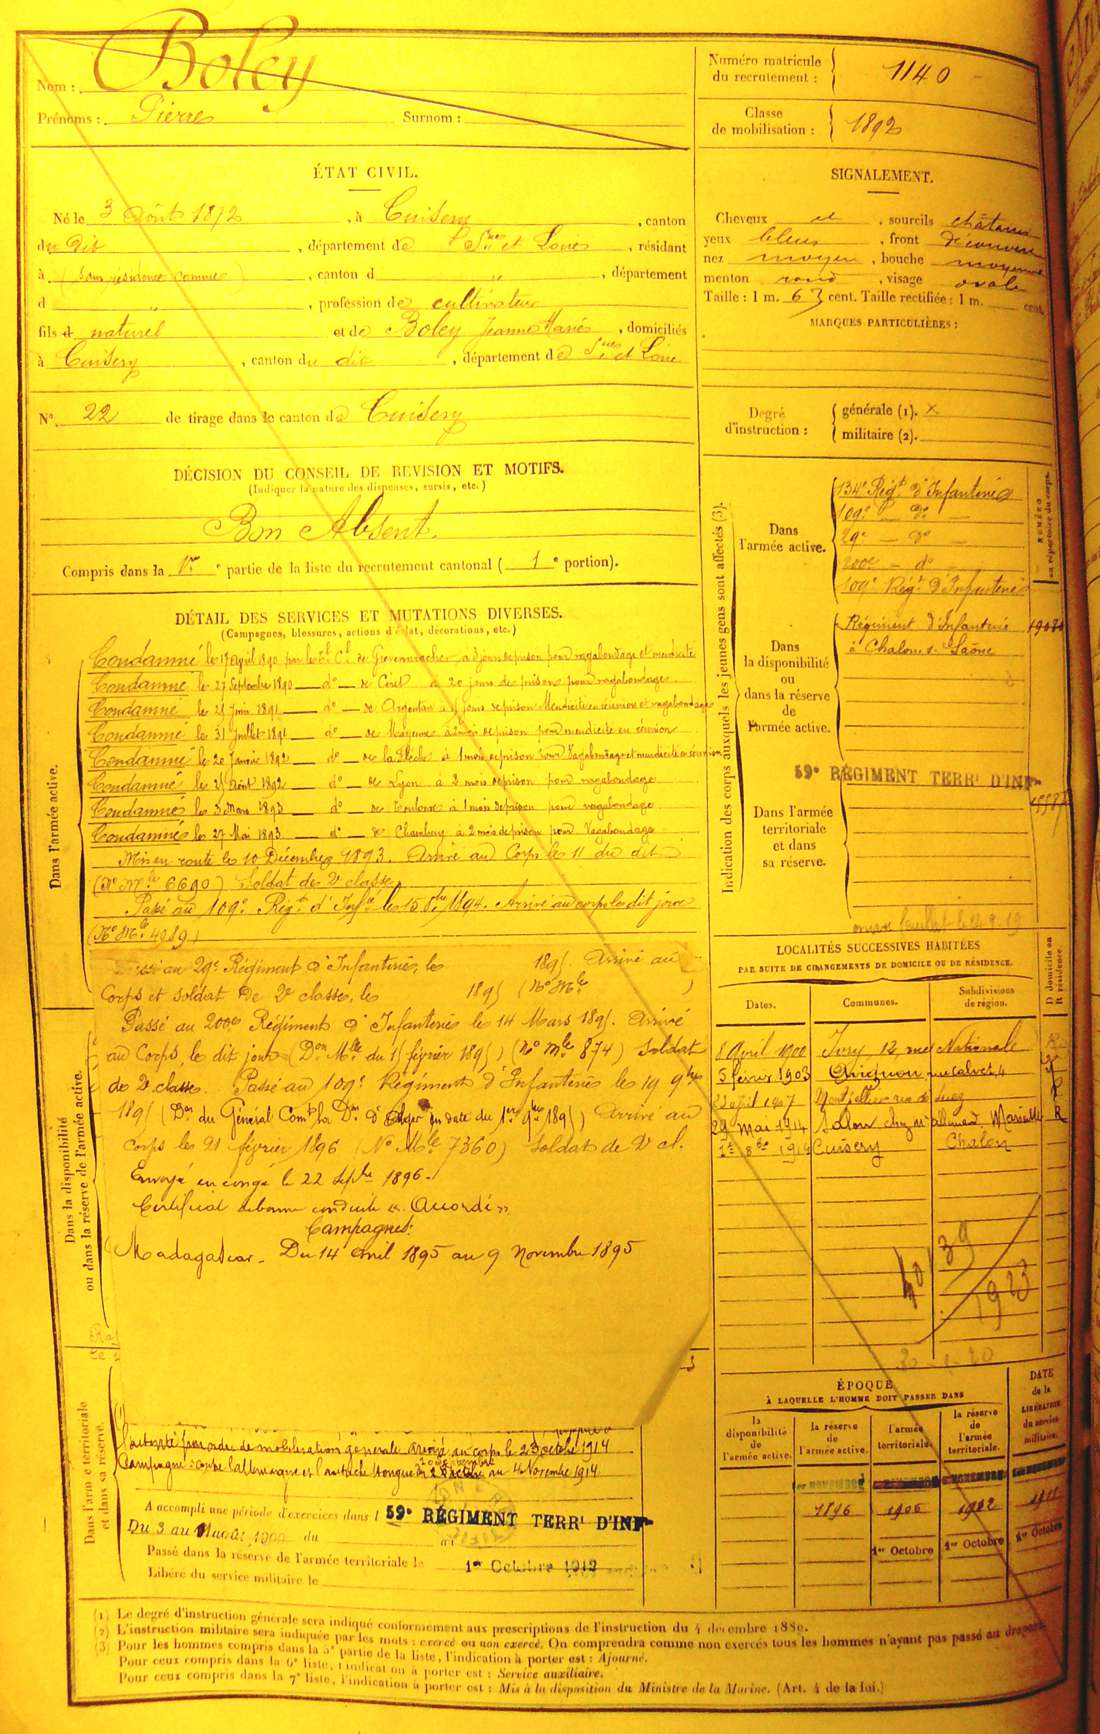 Nom : Boley
Prénoms : Pierre Surnom :
Numéro matricule du recrutement : 1140
Classe de mobilisation : 1892
ÉTAT CIVIL.
Né le 3 Août 1872, à Cuisery, canton
du dit, département de Sne et Loire, résidant
à (sans résidence connue), canton d " , département
d " , profession de cultivateur
fils d naturel et de Boley Jeanne Marie, domiciliés
à Cuisery, canton du dit, département de Sne et Loire
N° 22 de tirage dans le canton de Cuisery
SIGNALEMENT.
Cheveux et, sourcils châtains
yeux bleus, front découvert
nez moyen, bouche moyenne
menton rond, visage ovale
Taille : 1 m. 63 cent. Taille rectifiée : 1 m. cent.
MARQUES PARTICULIÈRES :
Degré d'instruction :
générale (1). x
militaire (2).
DÉCISION DU CONSEIL DE REVISION ET MOTIFS.
(Indiquer la nature des dispenses, sursis, etc.)
Bon Absent.
Compris dans la 1re partie de la liste du recrutement cantonal (1e portion).
DÉTAIL DES SERVICES ET MUTATIONS DIVERSES.
(Campagnes, blessures, actions d'éclat, décorations, etc.)
Dans l'armée active.
Condamné le 17 avril 1890 par le à jours de prison pour vagabondage et mendicité
Condamné le 27 Septembre 1890 — d° — de à 20 jours de prison pour vagabondage.
Condamné le Juin 1891 — d° — de Argentan à jours de prison Mendicité en réunion et vagabondage
Condamné le 31 Juillet 1891 — d° — de Mayenne à mois de prison pour mendicité en réunion
Condamné le 20 Janvier 1892 — d° — de la Flèche à 1 mois de prison pour Vagabondage et mendicité en réunion
Condamné le Août 1892 — d° — de Lyon à 2 mois de prison pour vagabondage
Condamné le 3 Mars 1893 — d° — de Toulouse à 1 mois de prison pour vagabondage
Condamné le 27 Mai 1893 — d° — de Chambéry à 2 mois de prison pour Vagabondage
Mis en route le 10 Décembre 1893. Arrivé au Corps le 11 du dit
(N° Mle 6690) Soldat de 2e classe
Passé au 109e Régt d'Infie le 15 1894. Arrivé au corps le dit jour
(N° Mle 4989)
Passé au 29e Régiment d'Infanterie, le 1895. Arrivé au
Corps et soldat de 2e classe, le 1895 (N° Mle )
Passé au 200e Régiment d'Infanterie le 14 Mars 1895. Arrivé
au Corps le dit jour (Don Mlle du 15 février 1895) (N° Mle 874) Soldat
de 2e classe. Passé au 109e Régiment d'Infanterie le 19 9bre
1895 (Don du Général Comt la Don d'Alger en date du 1er 9bre 1895) Arrivé au
corps le 21 février 1896 (N° Mle 7360) Soldat de 2e cl.
Envoyé en congé le 22 Sepbre 1896.
Certificat de bonne conduite « Accordé ».
Campagnes :
Madagascar. Du 14 avril 1895 au 9 Novembre 1895
Dans la disponibilité ou dans la réserve de l'armée active.
Dans l'armée territoriale et dans sa réserve.
l'autorité par ordre de mobilisation générale. Arrivé au corps le 23 octobre 1914
Campagne : contre l'allemagne et l'autriche Hongrie du 23 octobre au 4 Novembre 1914
A accompli une période d'exercices dans l 59e RÉGIMENT TERRl D'INFie
Du 3 au 11 août 190 du au
Passé dans la réserve de l'armée territoriale le 1er Octobre 1912
Libéré du service militaire le
Indication des corps auxquels les jeunes gens sont affectés (3).
NUMÉRO au répertoire du corps.
Dans l'armée active.
134e Régt d'Infanterie
109e — d° —
29e — d° —
200e — d° —
109e Régt d'Infanterie
Dans la disponibilité ou dans la réserve de l'armée active.
Régiment d'Infanterie
à Chalon s. Saône
59e RÉGIMENT TERRl D'INFie
Dans l'armée territoriale et dans sa réserve.
LOCALITÉS SUCCESSIVES HABITÉES
PAR SUITE DE CHANGEMENTS DE DOMICILE OU DE RÉSIDENCE.
Dates. Communes. Subdivisions de région. D domicile ou R résidence.
8 Avril 1900 Ivry, 12, rue Nationale
5 février 1903 Avignon, rue Calvet, 4
22 avril 1907 Montpellier rue de Suez
29 Mai 1914 Salon chez Mr allemand, Marseille R
1er 8bre 1914 Cuisery Chalon
1923
ÉPOQUE
À LAQUELLE L'HOMME DOIT PASSER DANS
la disponibilité de l'armée active.
la réserve de l'armée active.
l'armée territoriale.
la réserve de l'armée territoriale.
DATE de la LIBÉRATION du service militaire.
1er NOVEMBRE 1er NOVEMBRE 1er NOVEMBRE 1er NOVEMBRE
1896 1906 1912
1er Octobre 1er Octobre 1er Octobre
(1) Le degré d'instruction générale sera indiqué conformément aux prescriptions de l'instruction du 4 décembre 1889.
(2) L'instruction militaire sera indiquée par les mots : exercé ou non exercé. On comprendra comme non exercés tous les hommes n'ayant pas passé au drapeau.
(3) Pour les hommes compris dans la 5e partie de la liste, l'indication à porter est : Ajourné.
Pour ceux compris dans la 6e liste, l'indication à porter est : Service auxiliaire.
Pour ceux compris dans la 7e liste, l'indication à porter est : Mis à la disposition du Ministre de la Marine. (Art. 4 de la loi.)